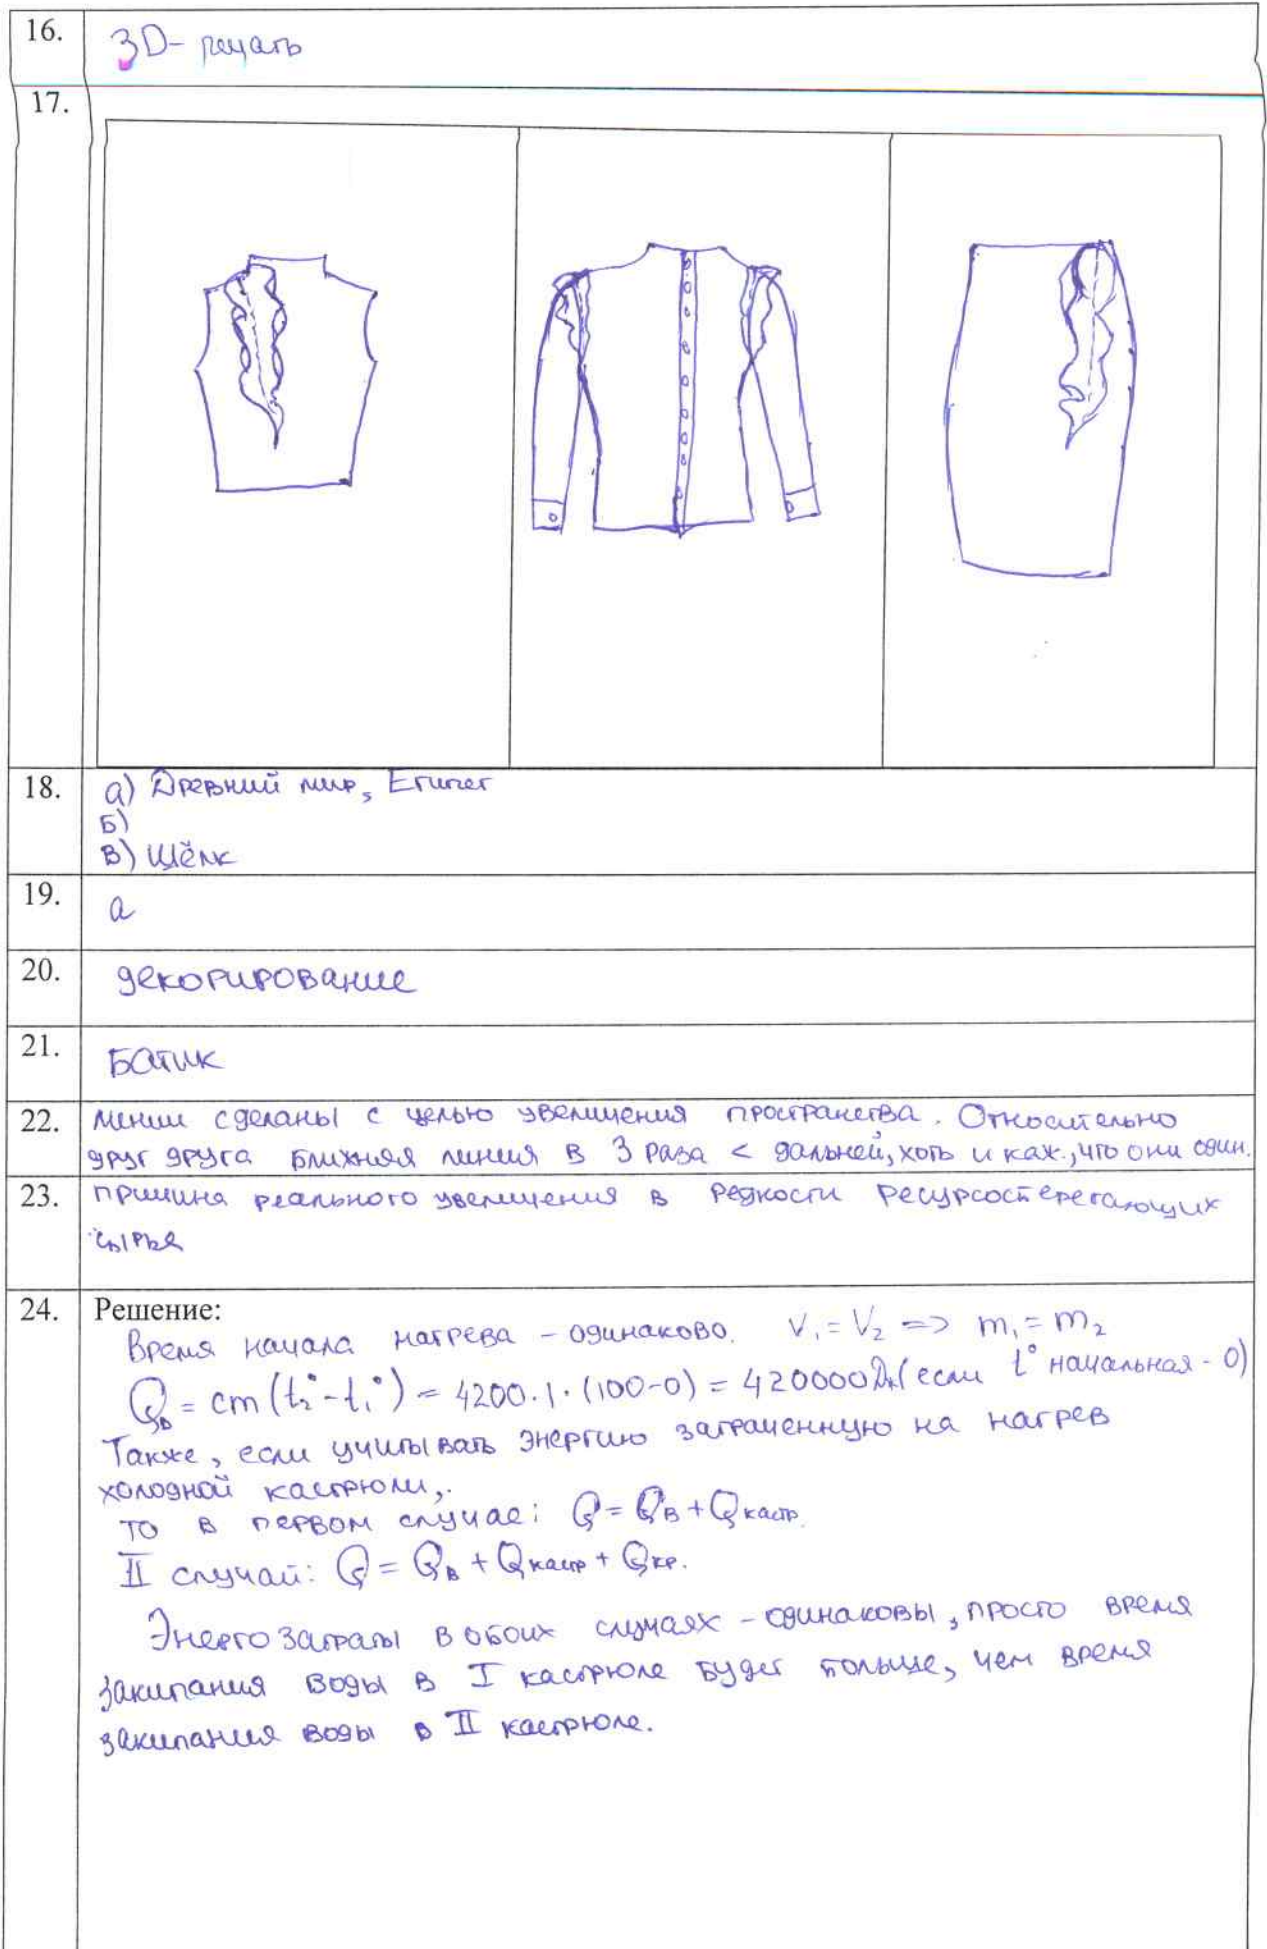 16. 3D-печать
17.
18. а) Древний мир, Египет
Б)
В) Шёлк
19. а
20. декорирование
21. Батик
22. Линии сделаны с целью увеличения пространства. Относительно
друг друга ближняя линия в 3 раза < дальней, хоть и каж., что они один.
23. Причина реального увеличения в редкости ресурсосберегающих
сырья
24. Решение:
Время начала нагрева - одинаково. V₁ = V₂ => m₁ = m₂
Qв = cm(t₂° - t₁°) = 4200·1·(100-0) = 420000Дж (если t° начальная - 0)
Также, если учитывать энергию затраченную на нагрев
холодной кастрюли,
то в первом случае: Q = Qв + Qкастр.
II случай: Q = Qв + Qкастр + Qкр.
Энергозатраты в обоих случаях - одинаковы, просто время
закипания воды в I кастрюле будет больше, чем время
закипания воды в II кастрюле.